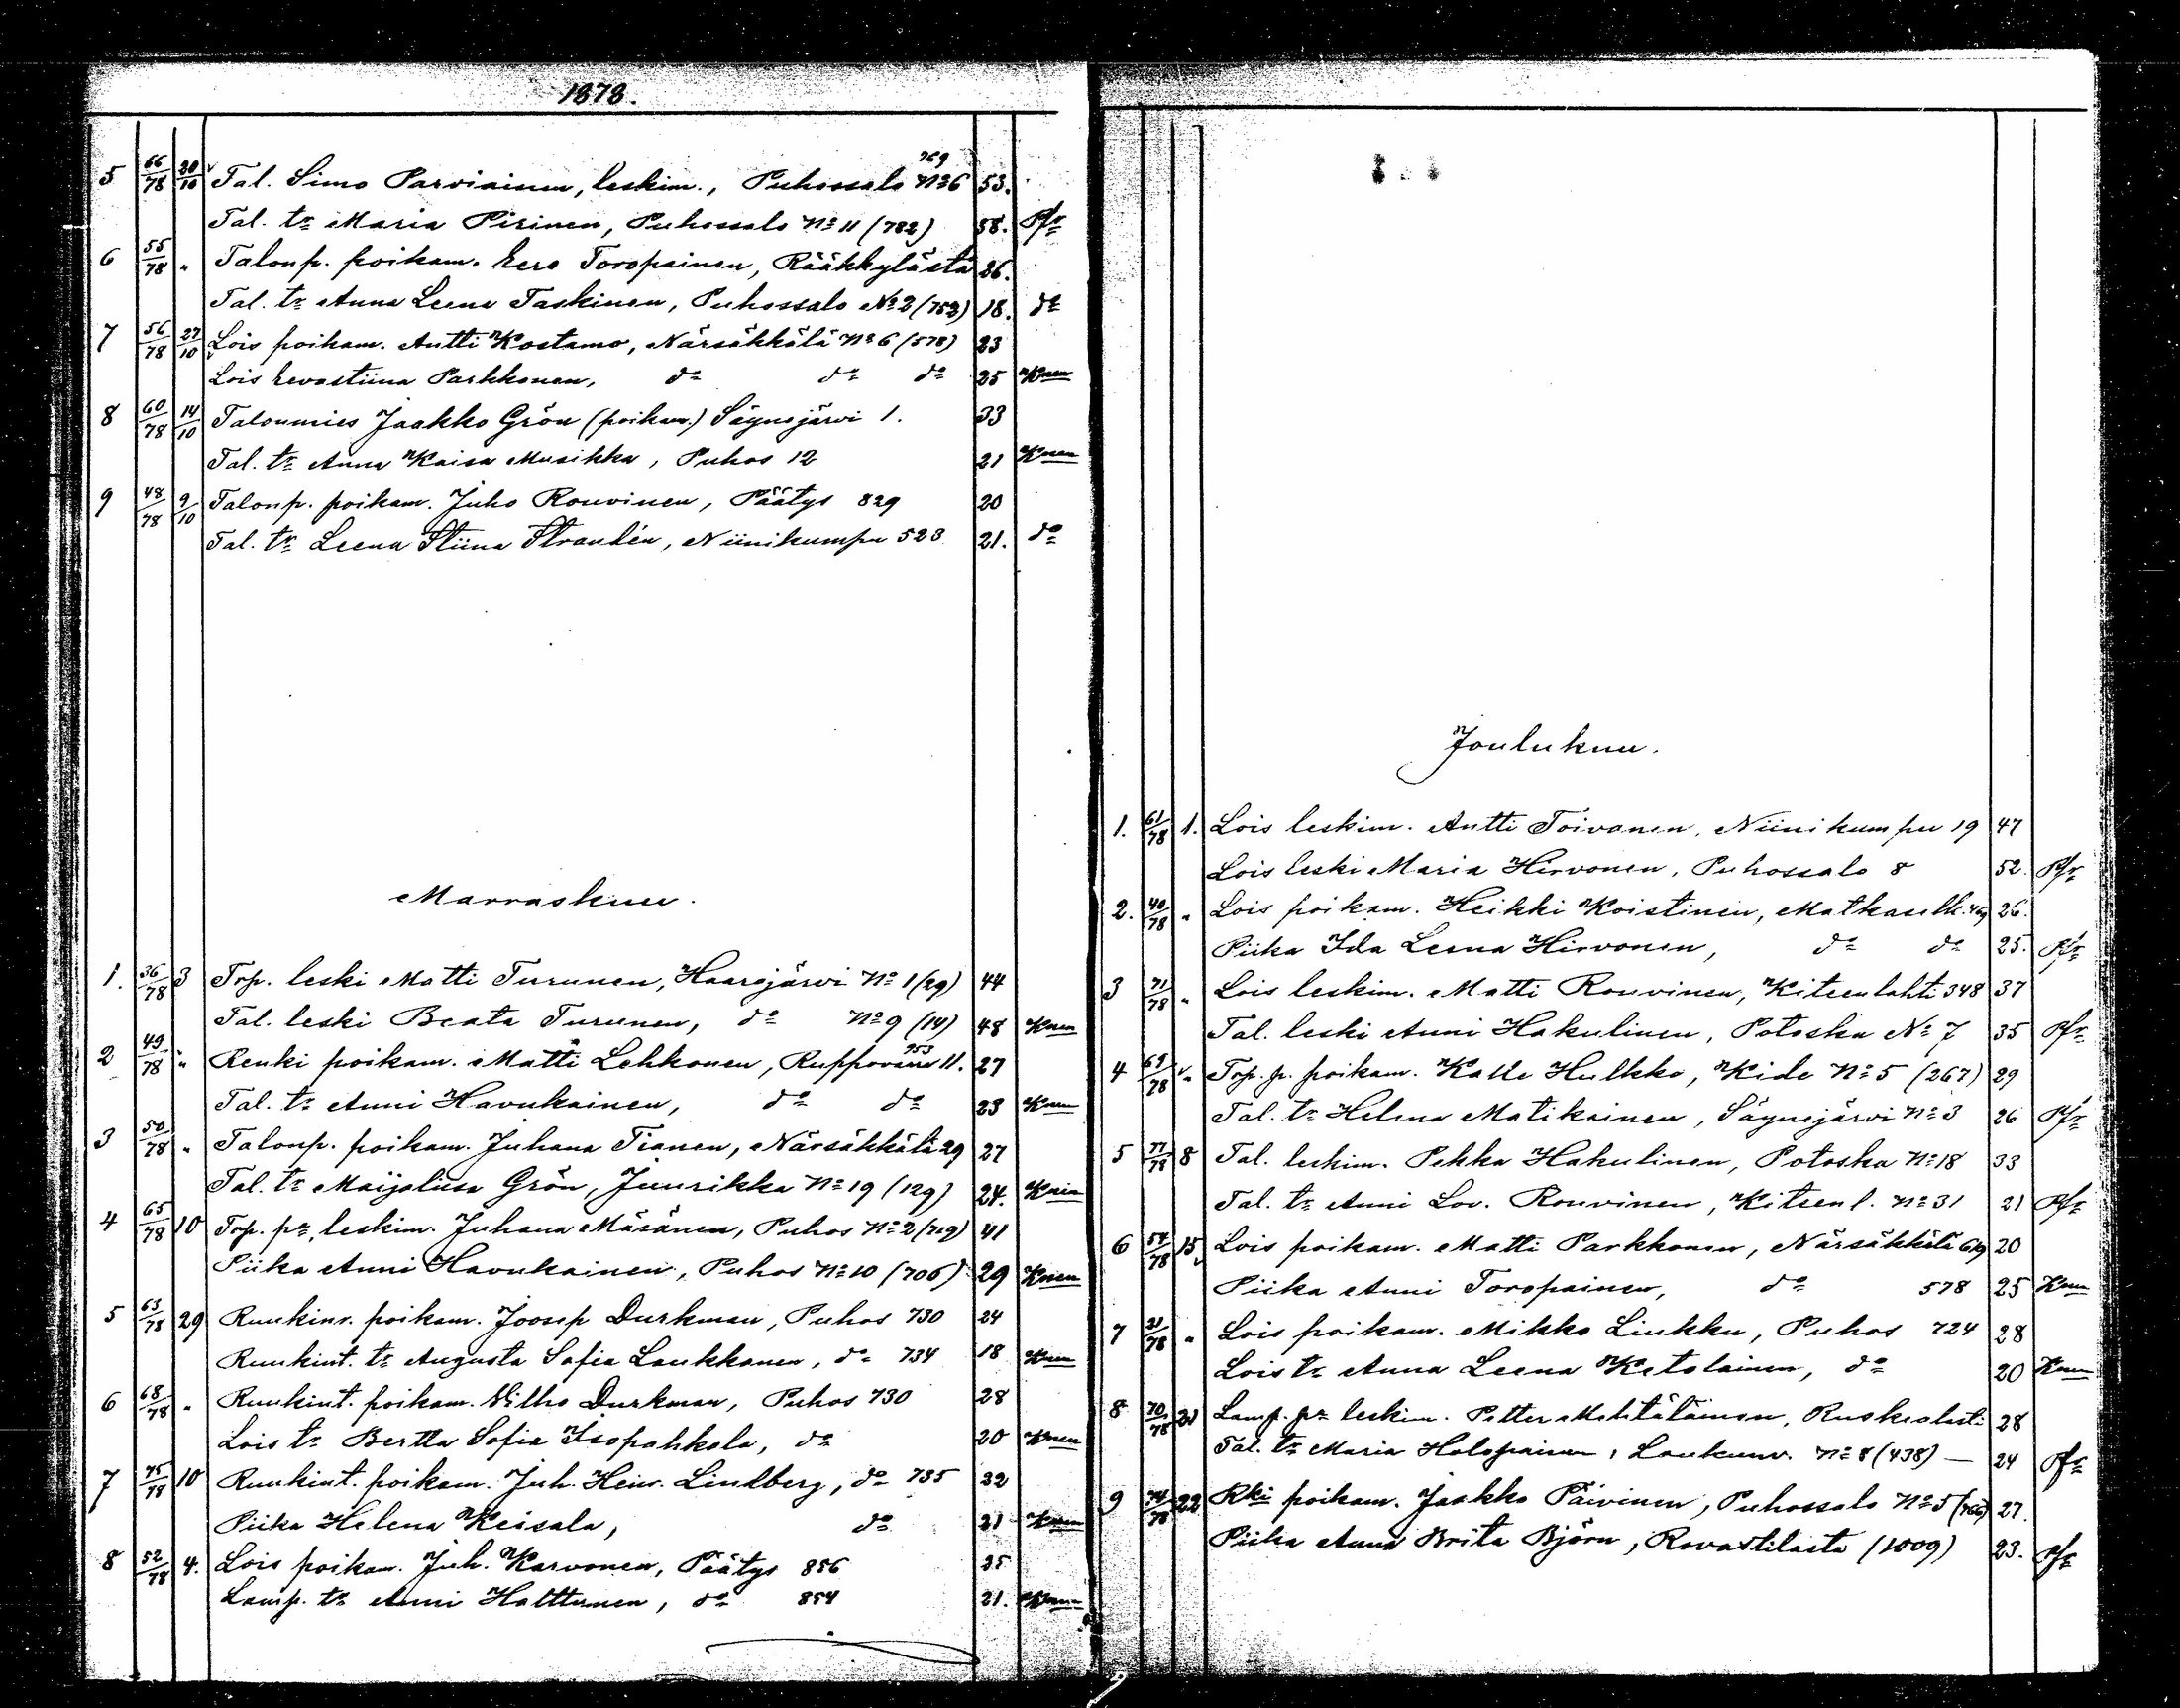 1878.
5 66/78 20/10 Tal. Simo Parviainen, leskim., Puhossalo 769 No 6 53.
Tal. tr Maria Pirinen, Puhossalo No 11 (782) 58. Pfr
6 55/78 " Talonp. poikam. Eero Toropainen, Rääkkylästä 26.
Tal. tr Anna Leena Taskinen, Puhossalo No 2 (753) 18. do
7 56/78 27/10 Lois poikam. Antti Kostamo, Närsäkkälä No 6 (578) 23
Lois Eevastiina Parkkonen, do do do 25 Knen
8 60/78 14/10 Talonmies Jaakko Grön (poikam.) Säynejärvi 1. 33
Tal. tr Anna Kaisa Musikka, Puhos 12 21 Knen
9 48/78 9/10 Talonp. poikam. Juho Rouvinen, Päätys 829 20
Tal. tr Leena Stiina Strandén, Niinikumpu 523 21. do
Marraskuu.
1. 36/78 3 Trp. leski Matti Turunen, Haarajärvi No 1 (29) 44
Tal. leski Beata Turunen, do No 9 (14) 48 Knen
2 49/78 " Renki poikam. Matti Lehkonen, Ruppovaara 953 11. 27
Tal. tr Anni Havukainen, do do 23 Knen
3 50/78 " Talonp. poikam. Juhana Tianen, Närsäkkälä 29 27
Tal. tr Maijaliisa Grön, Juurikka No 19 (129) 24. Knen
4 65/78 10 Trp. pr, leskim. Juhana Mäsänen, Puhos No 2 (719) 41
Piika Anni Havukainen, Puhos No 10 (706) 29 Knen
5 63/78 29 Ruukinr. poikam. Joosep Durkman, Puhos 730 24
Ruukint. tr Augusta Sofia Laukkanen, do 734 18 Knen
6 68/78 " Ruukint. poikam. Vilho Durkman, Puhos 730 28
Lois tr Bertta Sofia Isopahkala, do 20 Knen
7 75/78 10 Ruukint. poikam. Juh. Heinr. Lindberg, do 735 22
Piika Helena Keisala, do 21 Knen
8 52/78 4. Lois poikam. Juh. Karvonen, Päätys 856 25
Lamp. tr Anni Halttunen, do 854 21. Knen
Joulukuu.
1. 61/78 1. Lois leskim. Antti Toivanen, Niinikumpu 19 47
Lois leski Maria Hirvonen, Puhossalo 8 52. Pfr
2. 40/78 " Lois poikam. Heikki Koistinen, Matkaselk. 469 26.
Piika Ida Leena Hirvonen, do do 25. Pfr
3 71/78 " Lois leskim. Matti Rouvinen, Kiteenlahti 348 37
Tal. leski Anni Hakulinen, Potoska No 7 35 Pfr
4 69/78 " Trp. p. poikam. Kalle Hulkko, Kide No 5 (267) 29
Tal. tr Helena Matikainen, Säynejärvi No 3 26 Pfr
5 77/78 8 Tal. leskim. Pekka Hakulinen, Potoska No 18 33
Tal. tr Anni Lov. Rouvinen, Kiteenl. No 31 21 Pfr
6 54/78 15 Lois poikam. Matti Parkkonen, Närsäkkälä 619 20
Piika Anni Toropainen, do 578 25 Knen
7 31/78 " Lois poikam. Mikko Liukku, Puhos 724 28
Lois tr Anna Leena Ketolainen, do 20 Knen
8 70/78 21 Lamp. pr leskim. Petter Mehtäläinen, 28
Tal. tr Maria Holopainen, Laukunv. No 8 (438) — 24 Pfr
9 74/78 22 Rki poikam. Jaakko Päivinen, Puhossalo No 5 (766) 27.
Piika Anna Brita Björn, Rovastilasta (1009) 23. Pfr